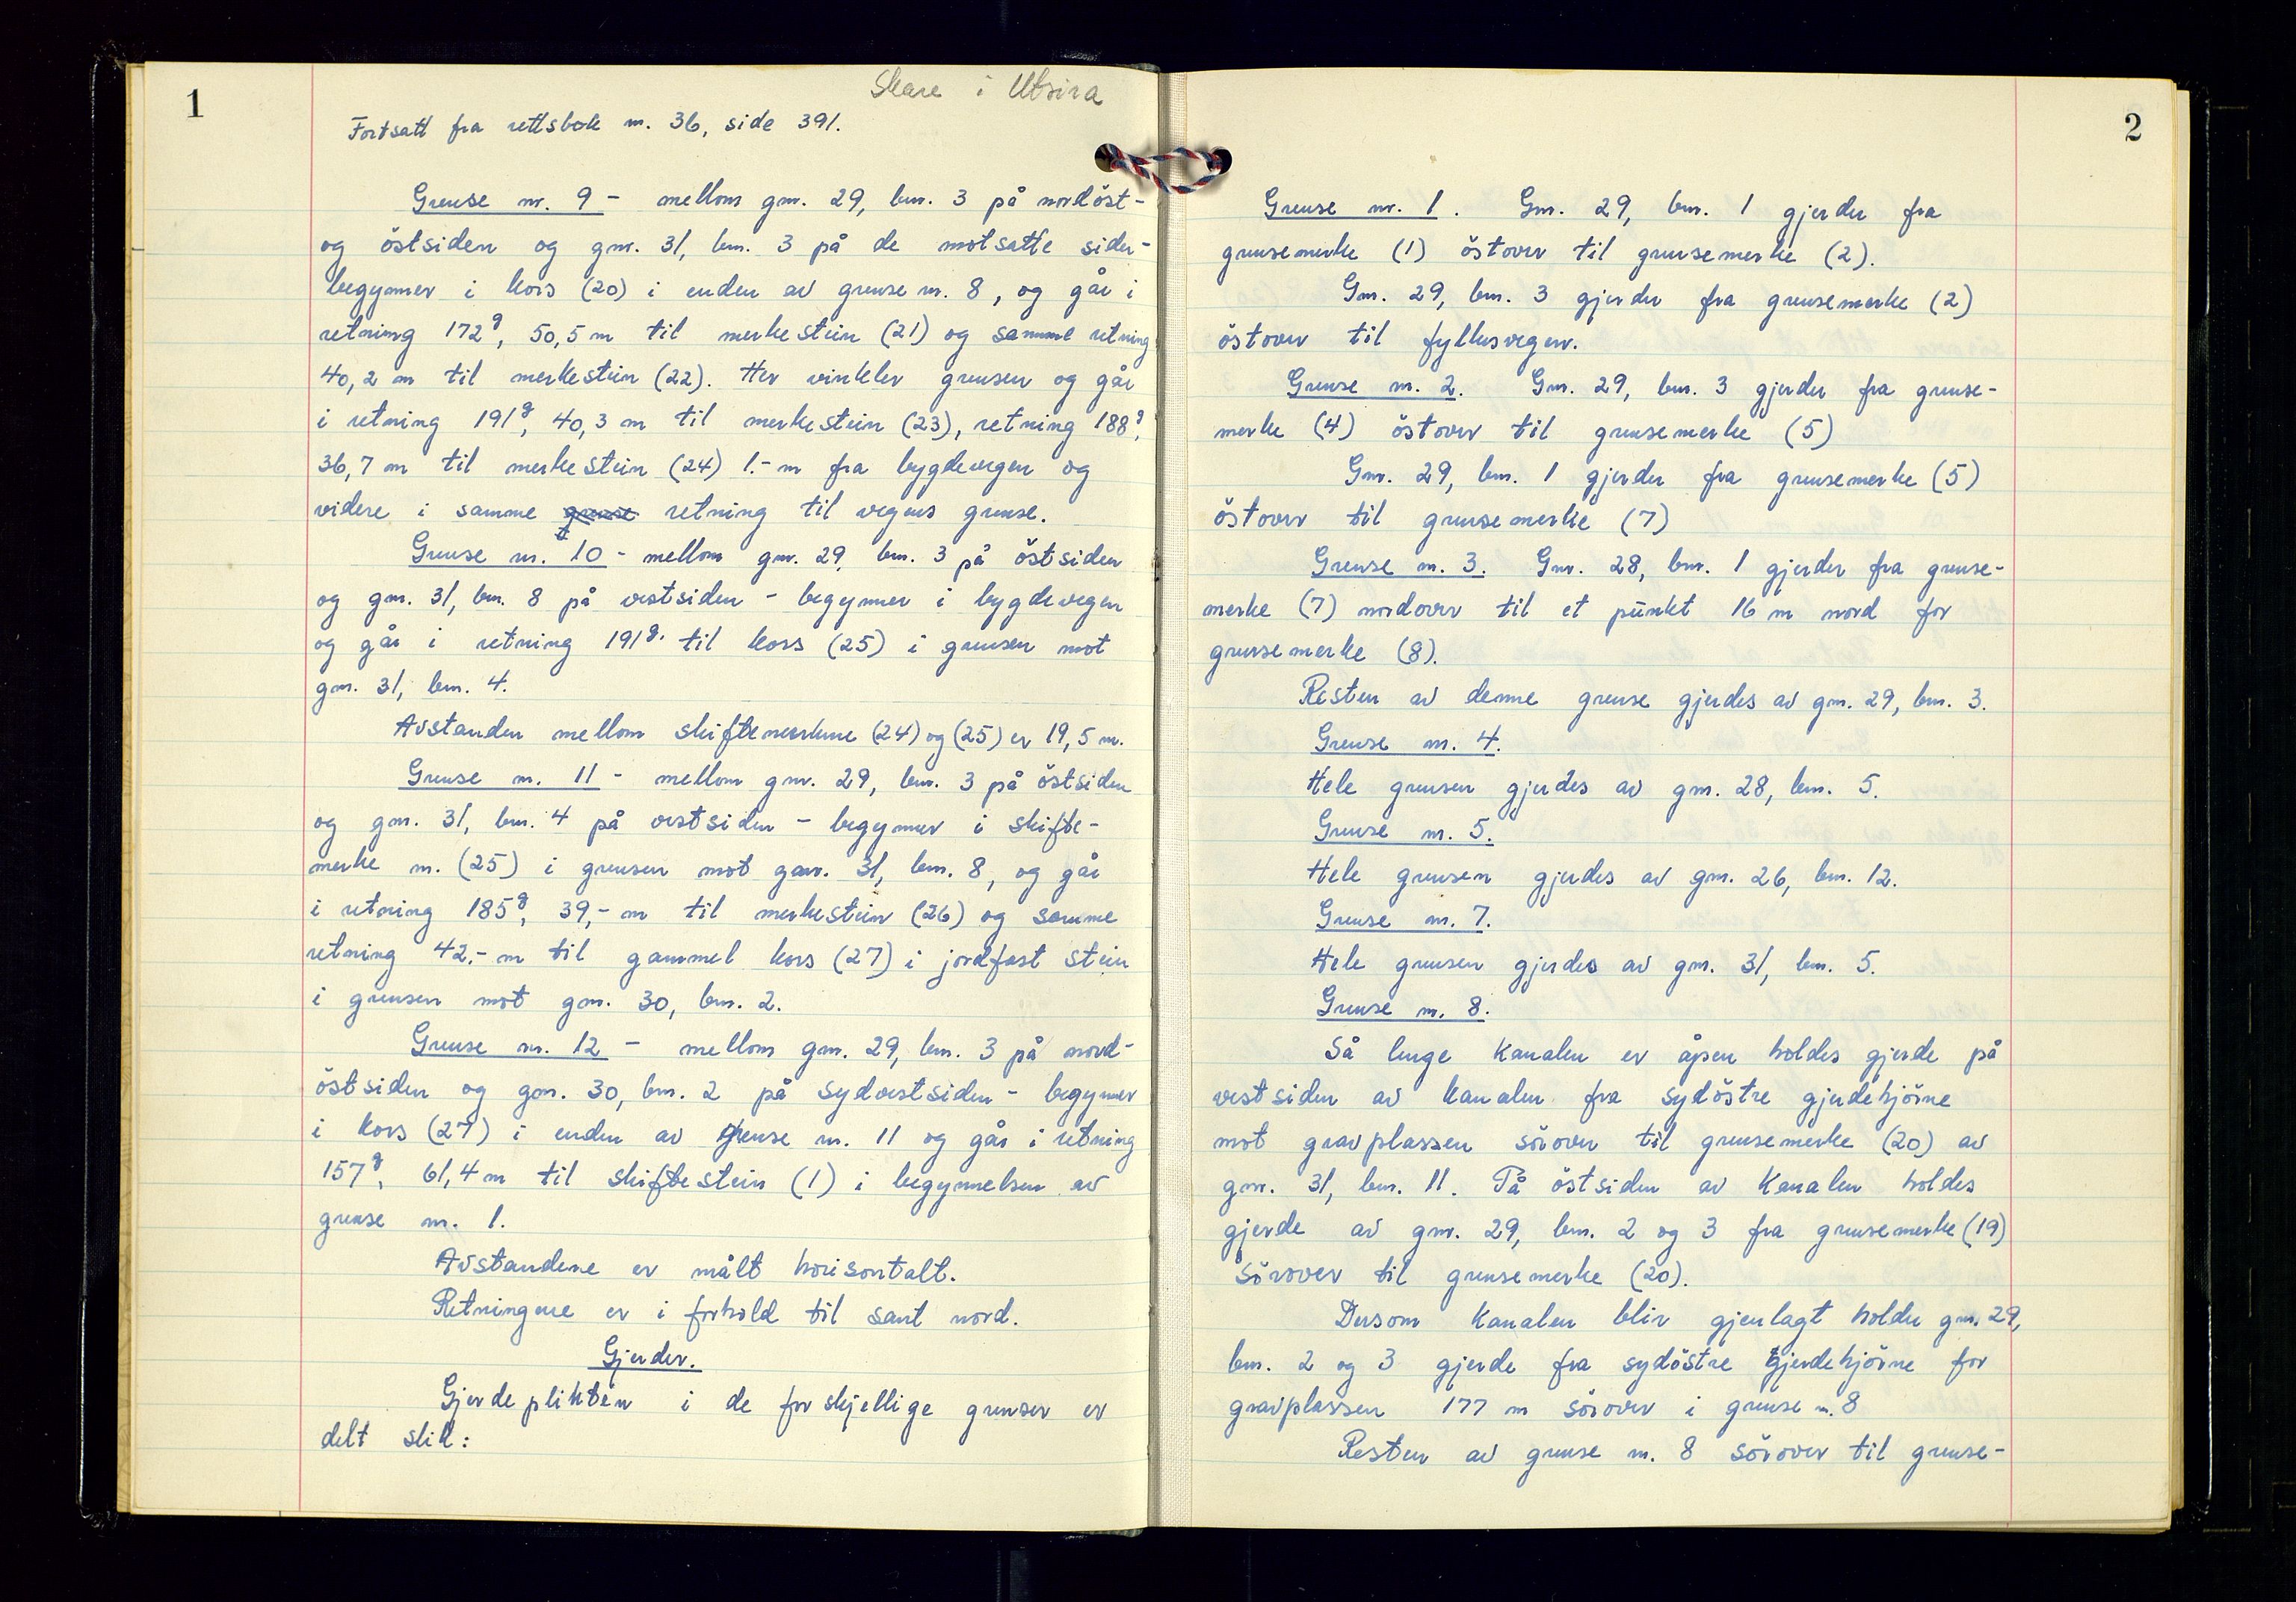 1
Skare i Utsira
Fortsatt fra rettsbok nr. 36, side 391.
Grense nr. 9 - mellom gnr. 29, bnr. 3 på nordöst-
og östsiden og gnr. 31, bnr. 3 på de motsatte sider -
begynner i kors (20) i enden av grense nr. 8, og går i
retning 172g, 50,5 m til merkestein (21) og samme retning
40,2 m til merkestein (22). Her vinkler grensen og går
i retning 191g, 40,3 m til merkestein (23), retning 188g,
36,7 m til merkestein (24) 1.- m fra bygdevegen og
videre i samme grense retning til vegens grense.
Grense nr. 10 - mellom gnr. 29, bnr. 3 på östsiden
og gnr. 31, bnr. 8 på vestsiden - begynner i bygdevegen
og går i retning 191g. til kors (25) i grensen mot
gnr. 31, bnr. 4.
Avstanden mellom skiftemerkene (24) og (25) er 19,5 m.
Grense nr. 11 - mellom gnr. 29, bnr. 3 på östsiden
og gnr. 31, bnr. 4 på vestsiden - begynner i skifte-
merke nr. (25) i grensen mot gnr. 31, bnr. 8, og går
i retning 185g, 39,- m til merkestein (26) og samme
retning 42,- m til gammel kors (27) i jordfast stein
i grensen mot gnr. 30, bnr. 2.
Grense nr. 12 - mellom gnr. 29, bnr. 3 på nord-
östsiden og gnr. 30, bnr. 2 på sydvestsiden - begynner
i kors (27) i enden av grense nr. 11 og går i retning
157g, 61,4 m til skiftestein (1) i begynnelsen av
grense nr. 1.
Avstandene er målt horisontalt.
Retningene er i forhold til sant nord.
Gjerder.
Gjerdeplikten i de forskjellige grenser er
delt slik:
2
Grense nr. 1. Gnr. 29, bnr. 1 gjerder fra
grensemerke (1) östover til grensemerke (2).
Gnr. 29, bnr. 3 gjerder fra grensemerke (2)
östover til fylkesvegen.
Grense nr. 2. Gnr. 29, bnr. 3 gjerder fra grense-
merke (4) östover til grensemerke (5)
Gnr. 29, bnr. 1 gjerder fra grensemerke (5)
östover til grensemerke (7)
Grense nr. 3. Gnr. 28, bnr. 1 gjerder fra grense-
merke (7) nordover til et punkt 16 m nord for
grensemerke (8).
Resten av denne grense gjerdes av gnr. 29, bnr. 3.
Grense nr. 4.
Hele grensen gjerdes av gnr. 28, bnr. 5.
Grense nr. 5.
Hele grensen gjerdes av gnr. 26, bnr. 12.
Grense nr. 7.
Hele grensen gjerdes av gnr. 31, bnr. 5.
Grense nr. 8.
Så lenge kanalen er åpen holdes gjerde på
vestsiden av kanalen fra sydöstre gjerdehjörne
mot gravplassen sörover til grensemerke (20) av
gnr. 31, bnr. 11. På östsiden av kanalen holdes
gjerde av gnr. 29, bnr. 2 og 3 fra grensemerke (19)
sörover til grensemerke (20).
Dersom kanalen blir gjenlagt holder gnr. 29,
bnr. 2 og 3 gjerde fra sydöstre gjerdehjörne for
gravplassen 177 m sörover i grense nr. 8
Resten av grense nr. 8 sörover til grense-